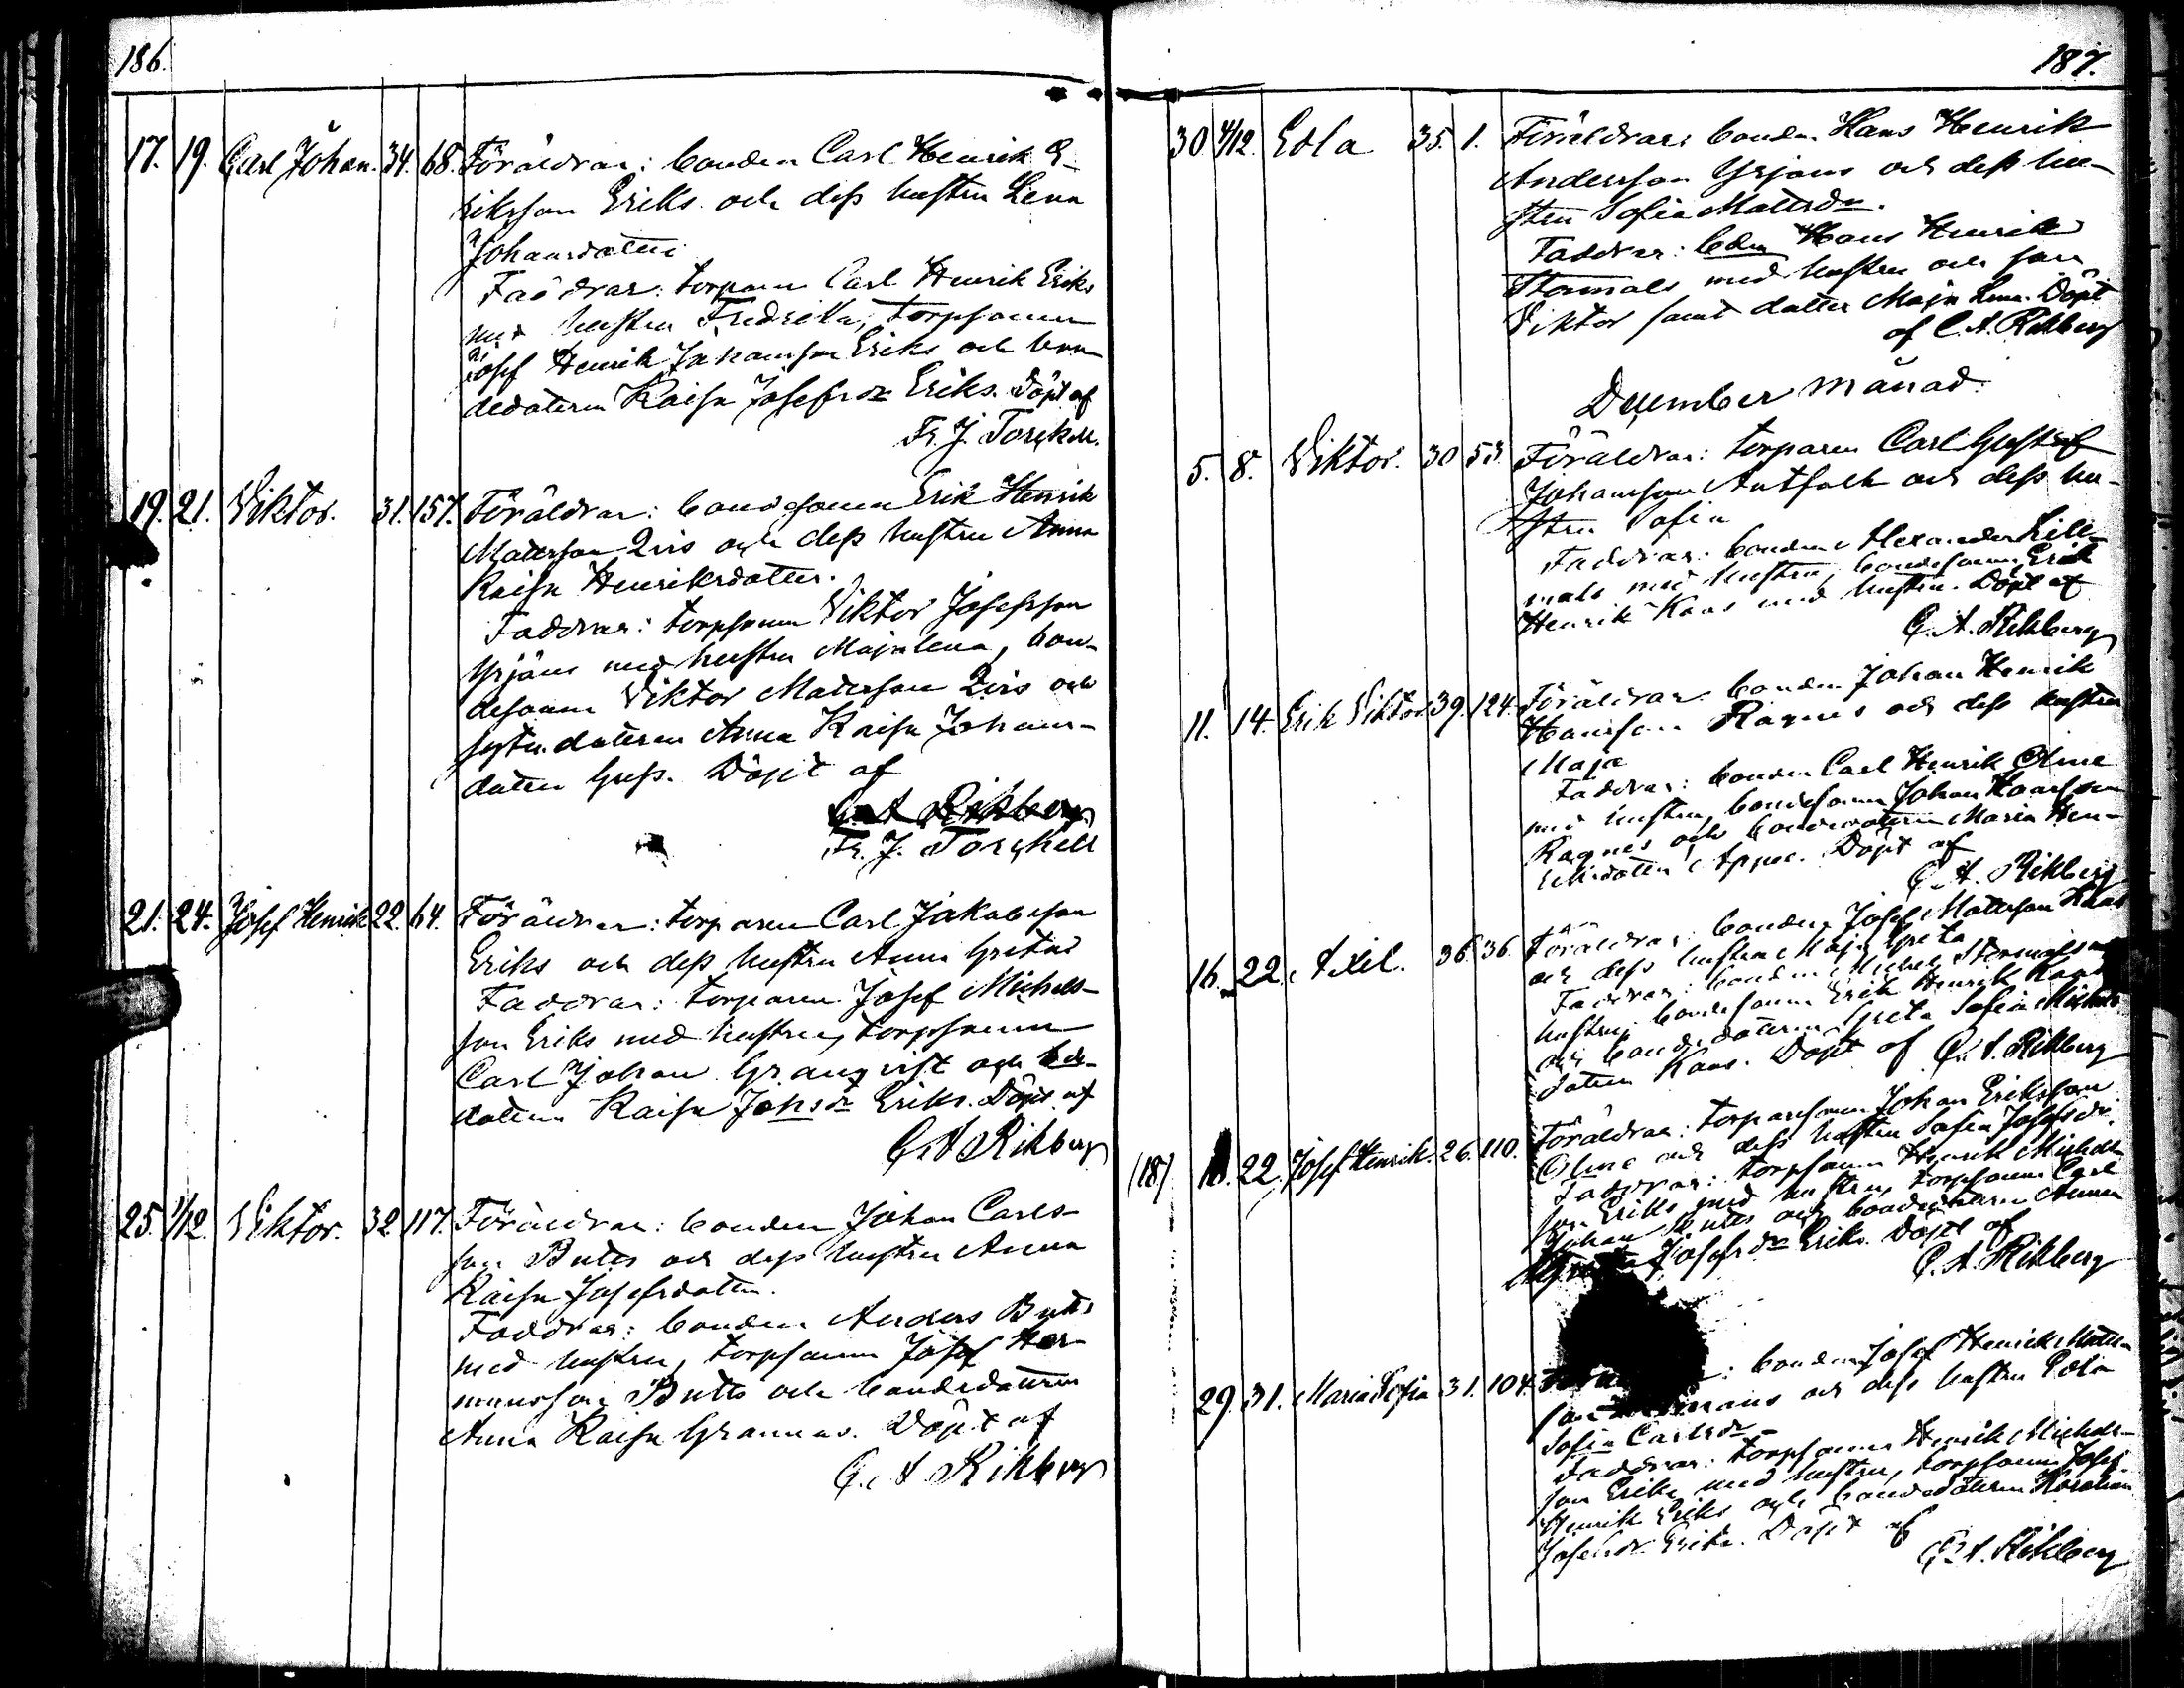 186.
17. 19. Carl Johan. 34. 68. Föräldrar: bonden Carl Henrik E-
riksson Eriks och dess hustru Lena
Johansdotter
Faddrar: torparen Carl Henrik Eriks
med hustru Fredrika, torpsonen
Josef Henrik Johansson Eriks och bon-
dedotern Kaisa Josefsdr Eriks. Döpt af
Fr. J. Torckell.
19. 21. Viktor. 31. 157. Föräldrar: bondesonen Erik Henrik
Mattsson Qvis och dess hustru Anna
Kaisa Henriksdotter.
Faddrar: torpsonen Viktor Josefsson
Yrjans med hustru Majalena, bon-
desonen Viktor Mattsson Qvis och
dotteren Anna Kaisa Johans-
dotter Döpt af
C. A. Rikberg
Fr. J. Torckell
21. 24. Josef Henrik 22. 64. Föräldrar: torparen Carl Jakobsson
Eriks och dess hustru Anna Greta
Faddrar: torparen Josef Michels-
son Eriks med hustru, torpsonen
Carl Johan Granqvist och bde-
dottern Kaisa Johsdr Eriks. Döpt af
C. A Rikberg
25. 1/12. Viktor. 32 117. Föräldrar: bonden Johan Carls-
son Butts och dess hustru Anna
Kaisa Josefsdotter.
Faddrar: bonden Anders Butts
med hustru, torpsonen Josef Her-
mansson Butts och bondedottren
Anna Kaisa Grannas. Döpt af
C. A. Rikberg
187.
30 4/12. Edla 35. 1. Föräldrar: bonden Hans Henrik
Andersson Yrjans och dess hu-
stru Sofia Mattsdr.
Faddrar: bden Hans Henrik
Stormals med hustru och son
Viktor samt dotter Maja Lena. Döpt
af C. A. Rikberg
December månad.
5. 8. Viktor. 30 53. Föräldrar: torparen Carl Gustaf
Johansson Antfolk och dess hu-
stru Sofia
Faddrar: bonden Alexander Lill-
mals med hustru, bondesonen Erik
Henrik Kaas med hustru. Döpt af
C. A. Rikberg
11. 14. Erik Viktor 39. 124. Föräldrar bonden Johan Henrik
Hansson Ragnes och dess hustru
Maja
Faddrar: bonden Carl Henrik Olme
med hustru, bondesonen Johan Hansson
Ragnes och bondedottren Maria Hen-
riksdotter Döpt af
C. A. Rikberg
16. 22. Axel. 36. 36. Föräldrar: bonden Josef Mattsson Kaas
och dess hustru Maja Greta
Faddrar: bonden Michel Stormals med
hustru, bondesonen Erik Henrik Kaas
och bondedottren Greta Sofia Michels-
dotter Kaas. Döpt af C. A. Rikberg
(18) 18. 22. Josef Henrik. 26. 110. Föräldrar: torparsonen Johan Eriksson
Olme och dess hustru Sofia Josefsdr.
Faddrar: torpsonen Henrik Michels-
son Eriks med hustru, torpsonen Carl
Johan Butts och bondedottern Anna
Greta Josefsdr Eriks. Döpt af
C. A. Rikberg
29. 31. Maria Sofia 31. 104. : bonden Josef Henrik Matts-
son och dess hustru Edla
Sofia Carlsdr
Faddrar: torpsonen Henrik Michels-
son Eriks med hustru, torpsonen Josef
Henrik Eriks och bondedottern Karolina
Josefsdr Eriks. Döpt af
C. A. Rikberg